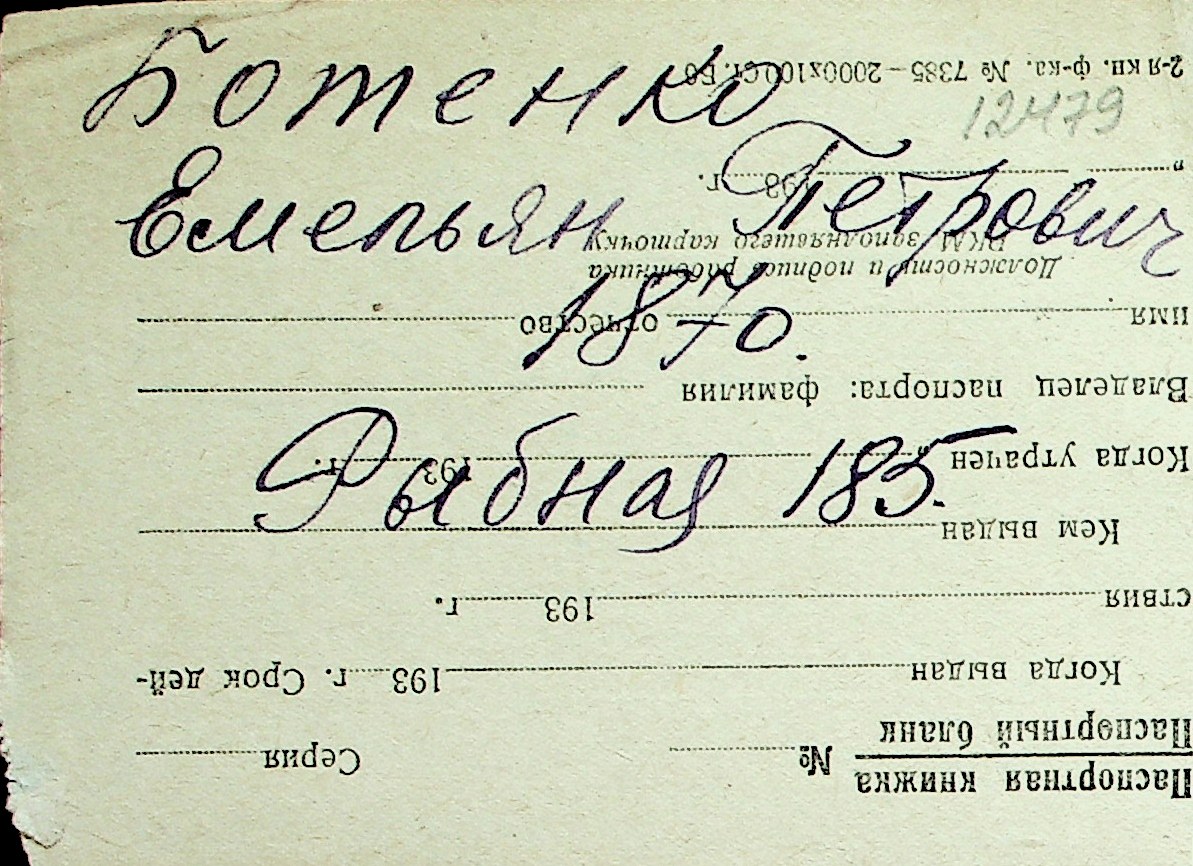 Ботенко
12479
Емельян Петрович
1870.
Рыбная 185.
Паспортная книжка
Паспортный бланк
№ Серия
Когда выдан 193 г. Срок дей-
ствия 193 г.
Кем выдан
Когда утрачен „ 193 г.
Владелец паспорта: фамилия
имя отчество
Должность и подпись работника
РКМ, заполнявшего карточку
„ 193 г.
2-я кн. ф-ка. № 7385—2000х100 Ст. Б6